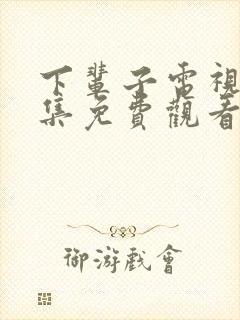 下輩子電視
集免費觀看
御游戲會